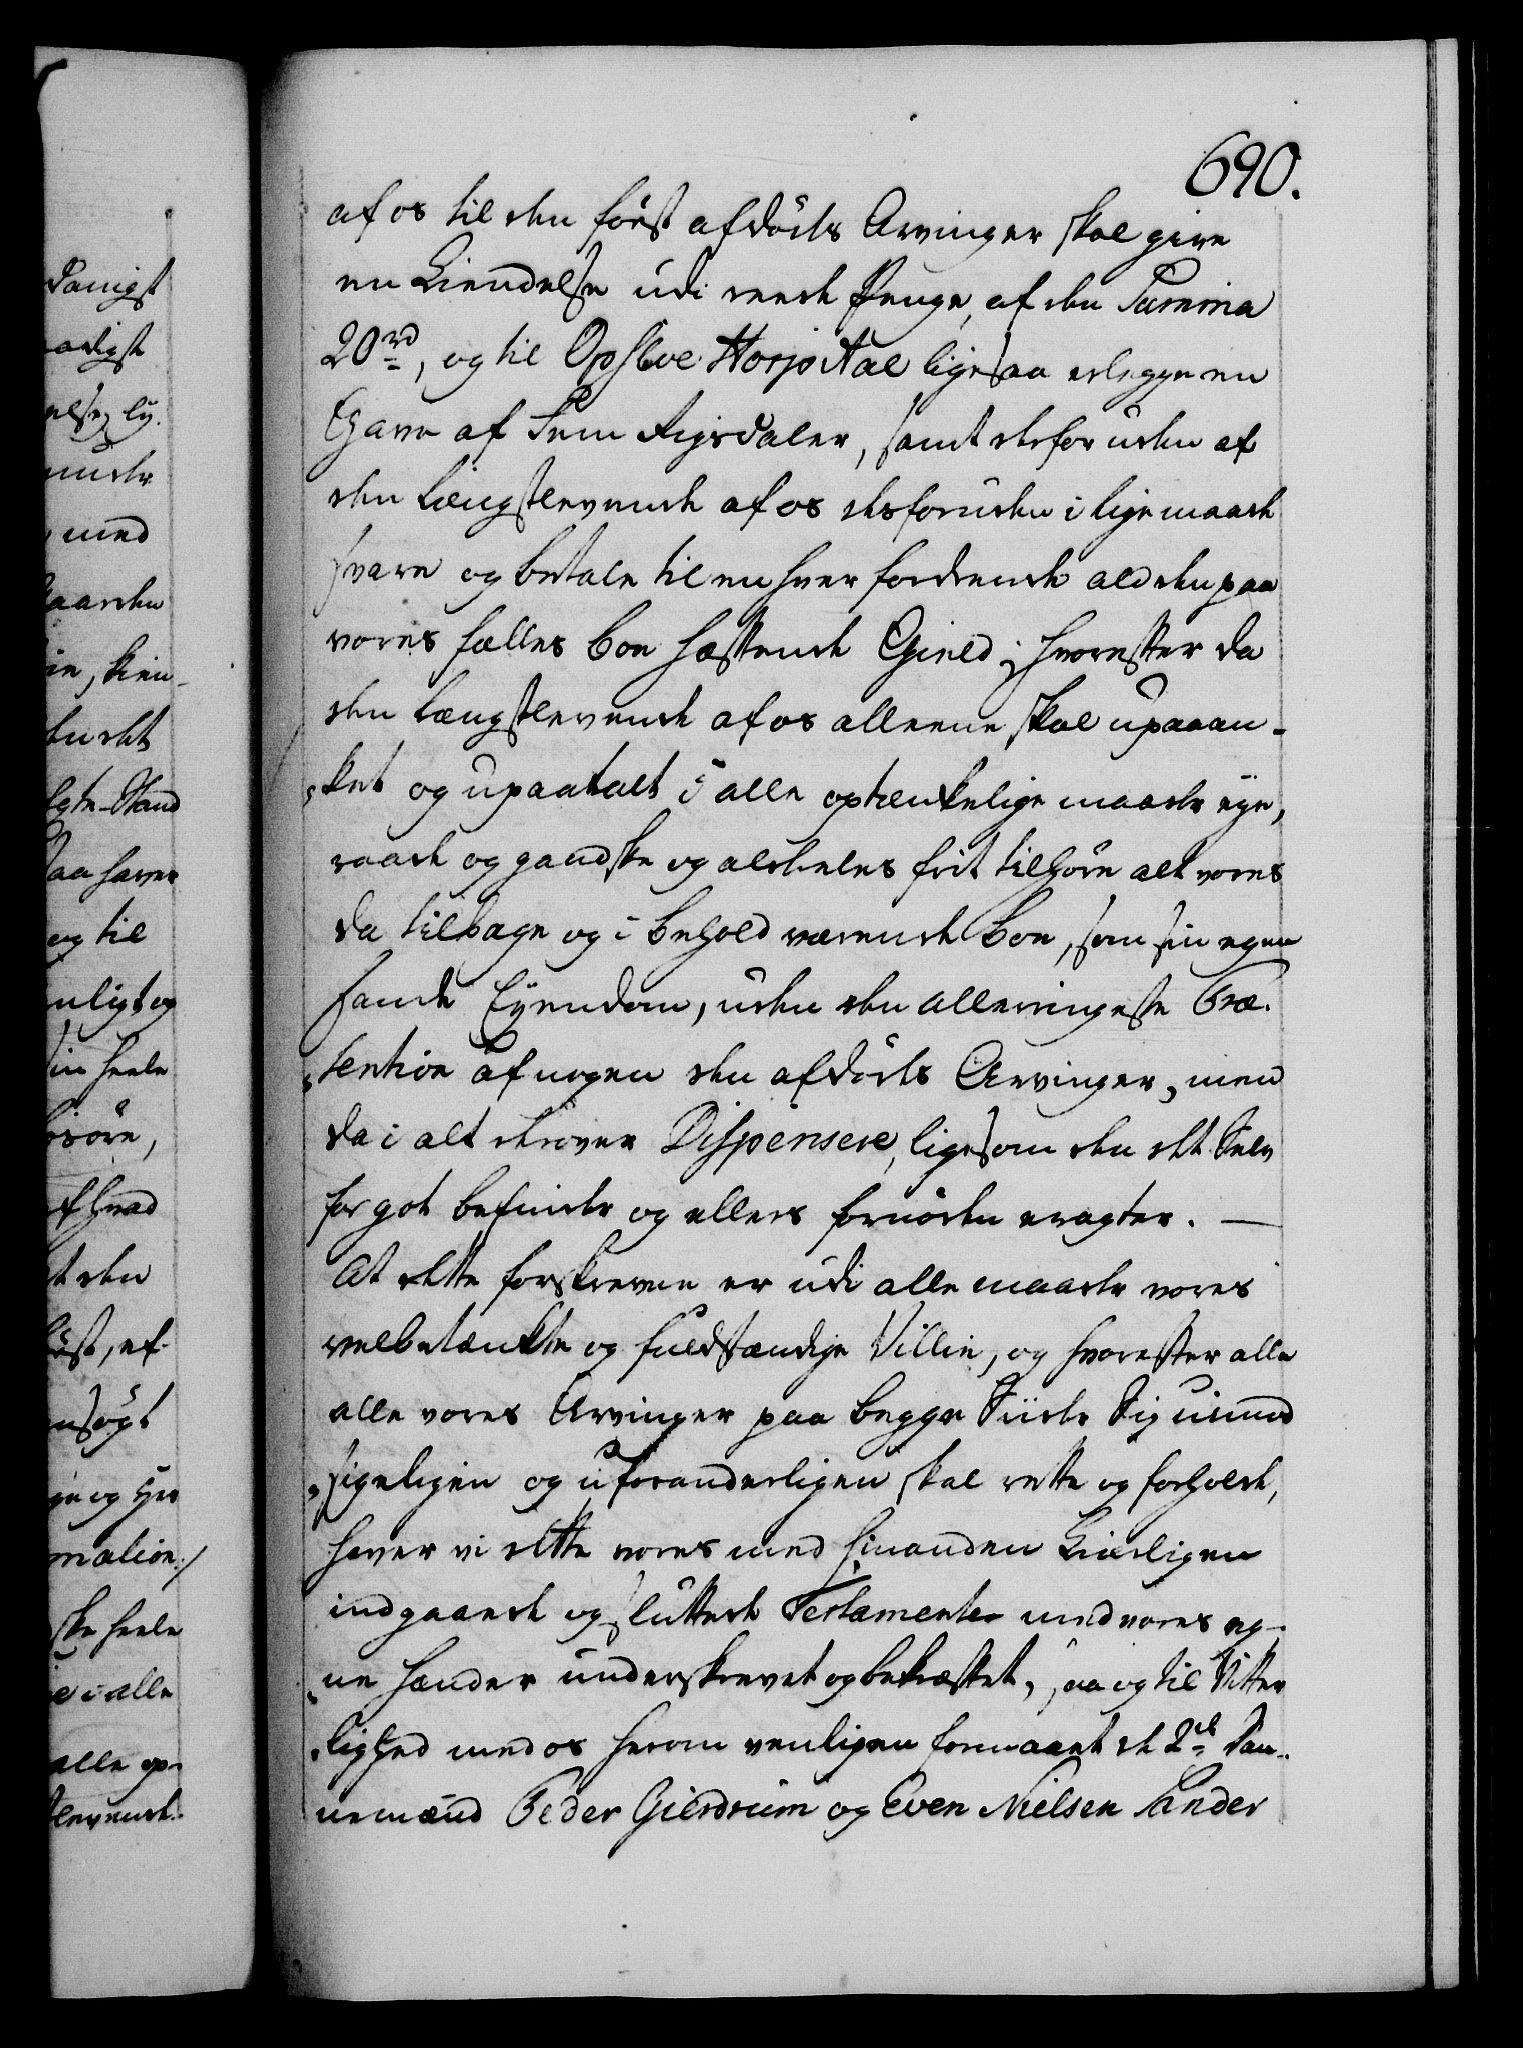 690.
af os til den först afdödes Arvinger skal give
en Kiendelse udi reede Penge, af den Summa
20 rd, og til Opsloe Hospital ligesaa erlegge en
Gave af Fem Rigsdaler, samt desforuden af
den Længstlevende af os desforuden i lige maade
svare og betale til enhver fordrende ald den paa
vores fælles Boe hæftende Gield; hvorefter da
den Længstlevende af os alleene skal upaaan-
ket og upaatalt i alle optenkelige maader eye,
raade og gandske og aldeeles frit tilhöre alt vores
da tilbage og i behold værende Boe, som sin egen
sande Eyendom, uden den allerringeste Præ-
tention af nogen den afdödes Arvinger, men
da i alt derover Dispensere, ligesom den det Selv
for got befinder og ellers fornöden eragter. —
At dette forskrevne er udi alle maader vores
velbetænkte og fuldstændige Villie, og hvorefter alle
alle vores Arvinger paa begge Siider Sig uimod
sigeligen og uforanderligen skal rette og forholde,
haver vi dette vores med hinanden Kierligen
indgaaede og sluttede Testamente med vores eg-
ne hænder underskrevet og bekræftet, saa og til Vitter
lighed med os herom venligen formaaet de 2de Dan-
nemænd Peder Gierdrum og Even Nielsen Sander